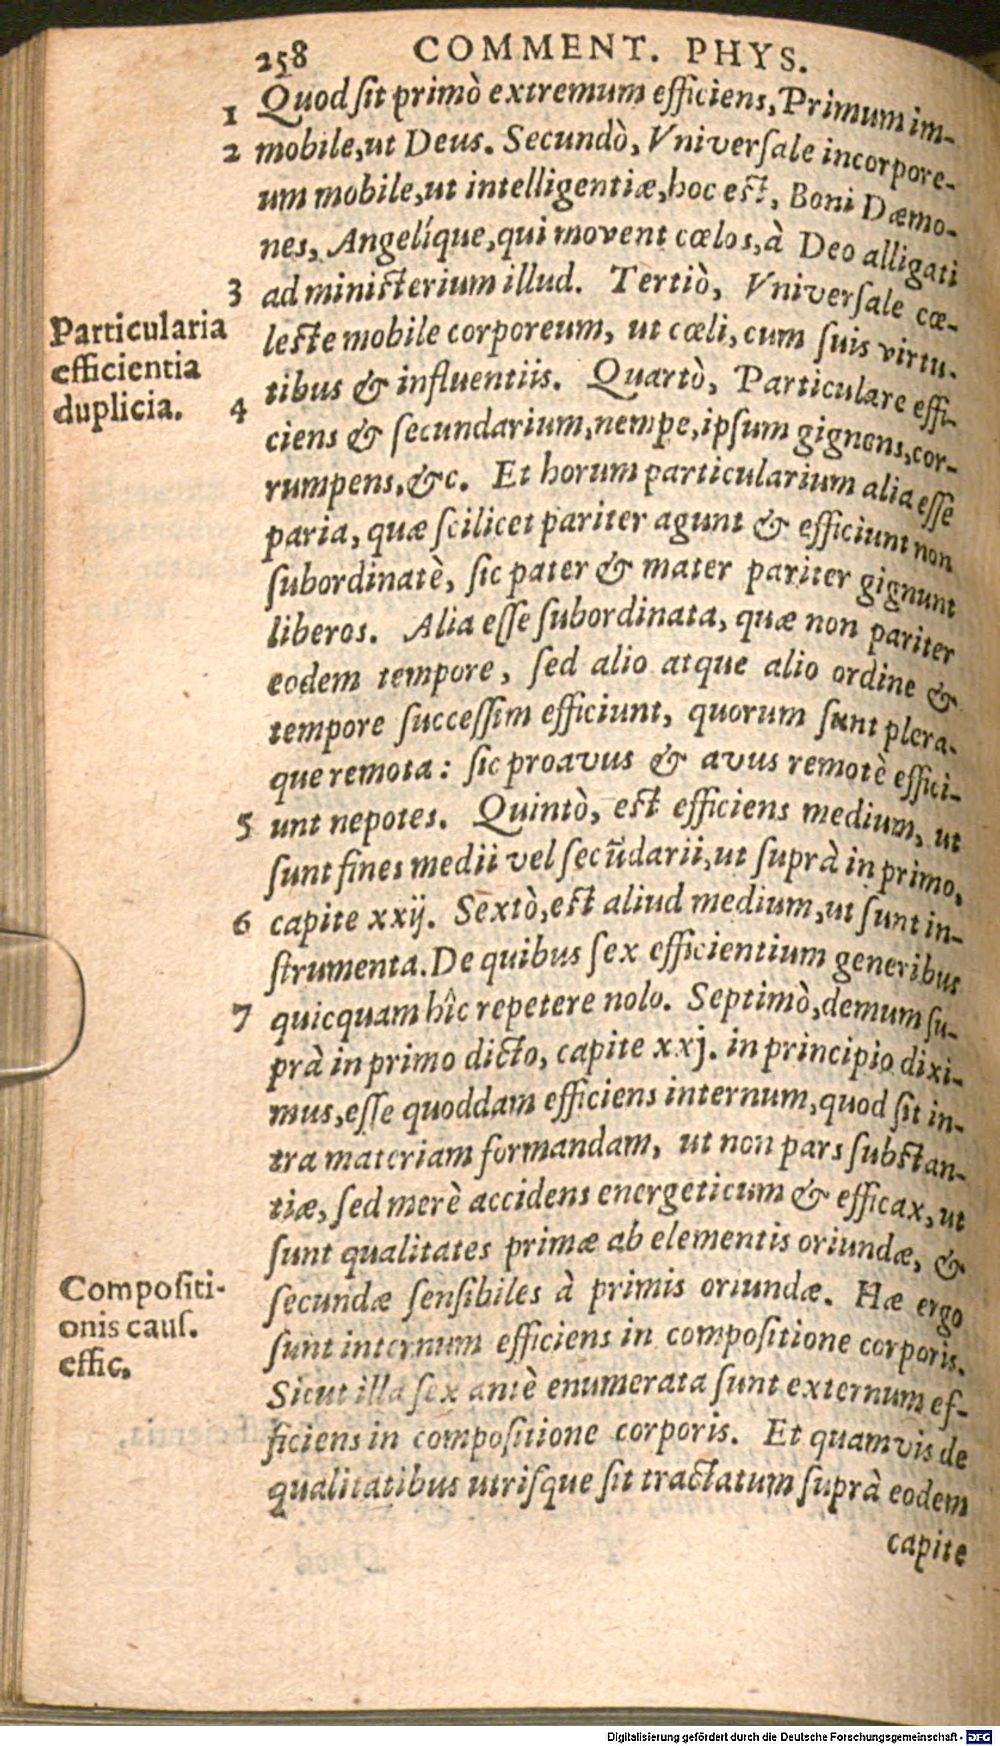 258 COMMENT. PHYS.
1 Quod sit primò extremum efficiens, Primum im-
2 mobile, ut Deus. Secundò, Vniversale incorpore-
um mobile, ut intelligentiæ, hoc est, Boni Dæmo-
nes, Angelíque, qui movent cœlos, à Deo alligati
3 ad ministerium illud. Tertiò, Vniversale cœ-
Particularia
efficientia
duplicia.
leste mobile corporeum, ut cœli, cum suis virtu-
tibus & influentiis. Quartò, Particulare effi-
4 ciens & secundarium, nempe, ipsum gignens, cor-
rumpens, &c. Et horum particularium alia esse
paria, quæ scilicet pariter agunt & efficiunt non
subordinatè, sic pater & mater pariter gignunt
liberos. Alia esse subordinata, quæ non pariter
eodem tempore, sed alio atque alio ordine &
tempore successim efficiunt, quorum sunt plera-
que remota: sic proavus & avus remotè effici-
5 unt nepotes. Quintò, est efficiens medium, ut
sunt fines medii vel secũdarii, ut suprà in primo,
6 capite xxij. Sextò, est aliud medium, ut sunt in-
strumenta. De quibus sex efficientium generibus
7 quicquam hîc repetere nolo. Septimò, demum su-
prà in primo dicto, capite xxj. in principio dixi-
mus, esse quoddam efficiens internum, quod sit in-
tra materiam formandam, ut non pars substan-
tiæ, sed merè accidens energeticum & efficax, ut
sunt qualitates primæ ab elementis oriundæ, &
Compositi-
onis caus.
effic.
secundæ sensibiles à primis oriundæ. Hæ ergo
sunt internum efficiens in compositione corporis.
Sicut illa sex antè enumerata sunt externum ef-
ficiens in compositione corporis. Et quamvis de
qualitatibus utrisque sit tractatum suprà eodem
capite
Digitalisierung gefördert durch die Deutsche Forschungsgemeinschaft - DFG